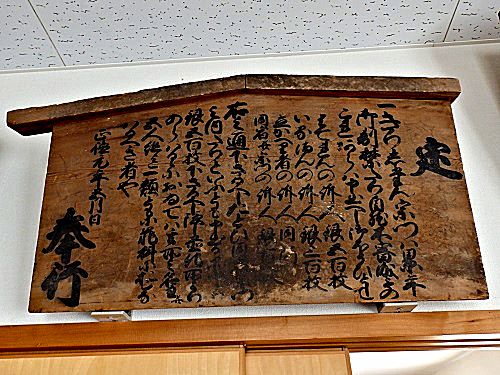 定
一きりしたん宗門ハ累年
御制禁たり自然不審成もの
これあらハ申出へし御ほうひとして
はてれんの訴人 銀五百枚
いるまんの訴人 銀三百枚
立かへり者の訴人 同断
同宿并宗門の訴人 銀百枚
右之通下さるへしたとひ同宿宗門
の内たりといふとも申出る品により
銀五百枚下さるへし隠置他所より
あらハるゝにおゐてハ其所之名主并
五人組迄一類ともに罪科おこなハる
へき者也
正徳元年五月日
奉行